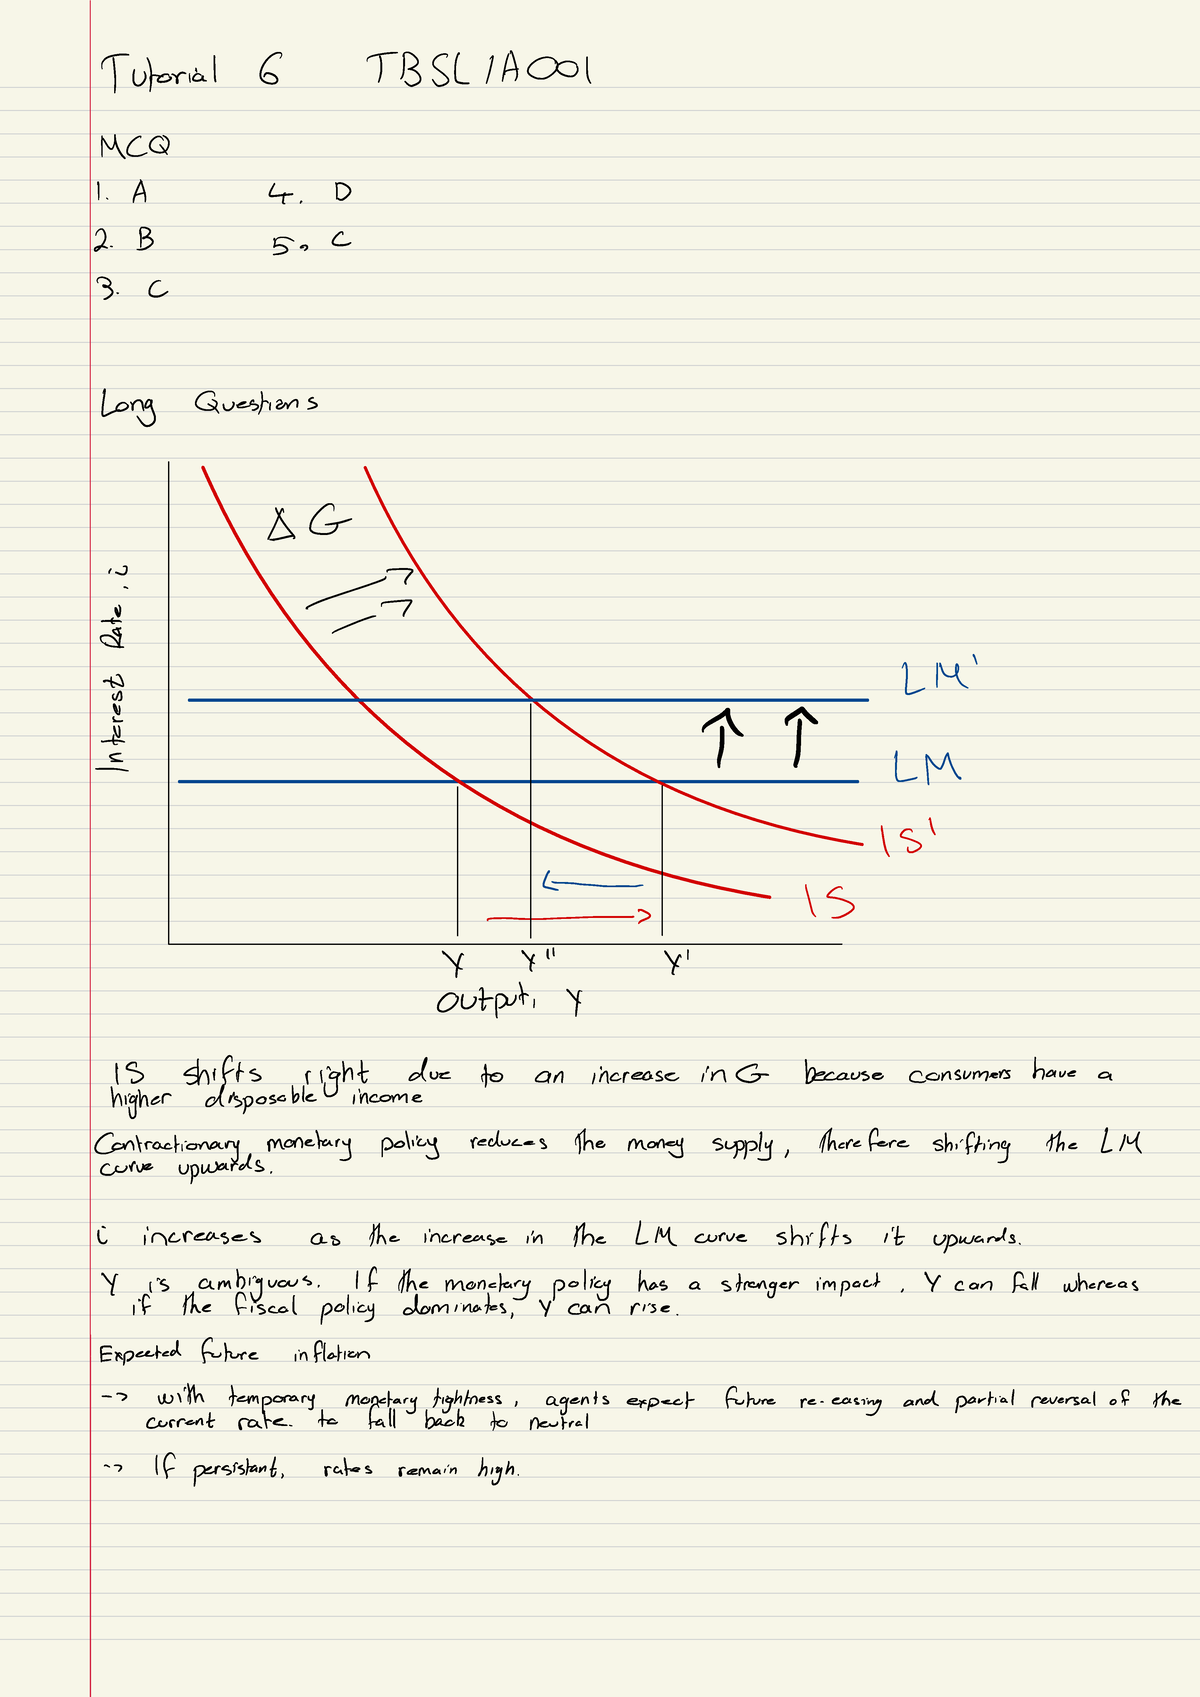 Tutorial 6 TBSL1A001
MCQ
1. A 4. D
2. B 5. C
3. C
Long Questions
ΔG
Interest Rate, i
LM'
LM
IS'
IS
Y Y'' Y'
Output, Y
IS shifts right due to an increase in G because consumers have a
higher disposable income
Contractionary monetary policy reduces the money supply, therefore shifting the LM
curve upwards.
i increases as the increase in the LM curve shifts it upwards.
Y is ambiguous. If the monetary policy has a stronger impact, Y can fall whereas
if the fiscal policy dominates, Y can rise.
Expected future inflation
-> with temporary monetary tightness, agents expect future re-easing and partial reversal of the
current rate. to fall back to neutral
-> If persistant, rates remain high.